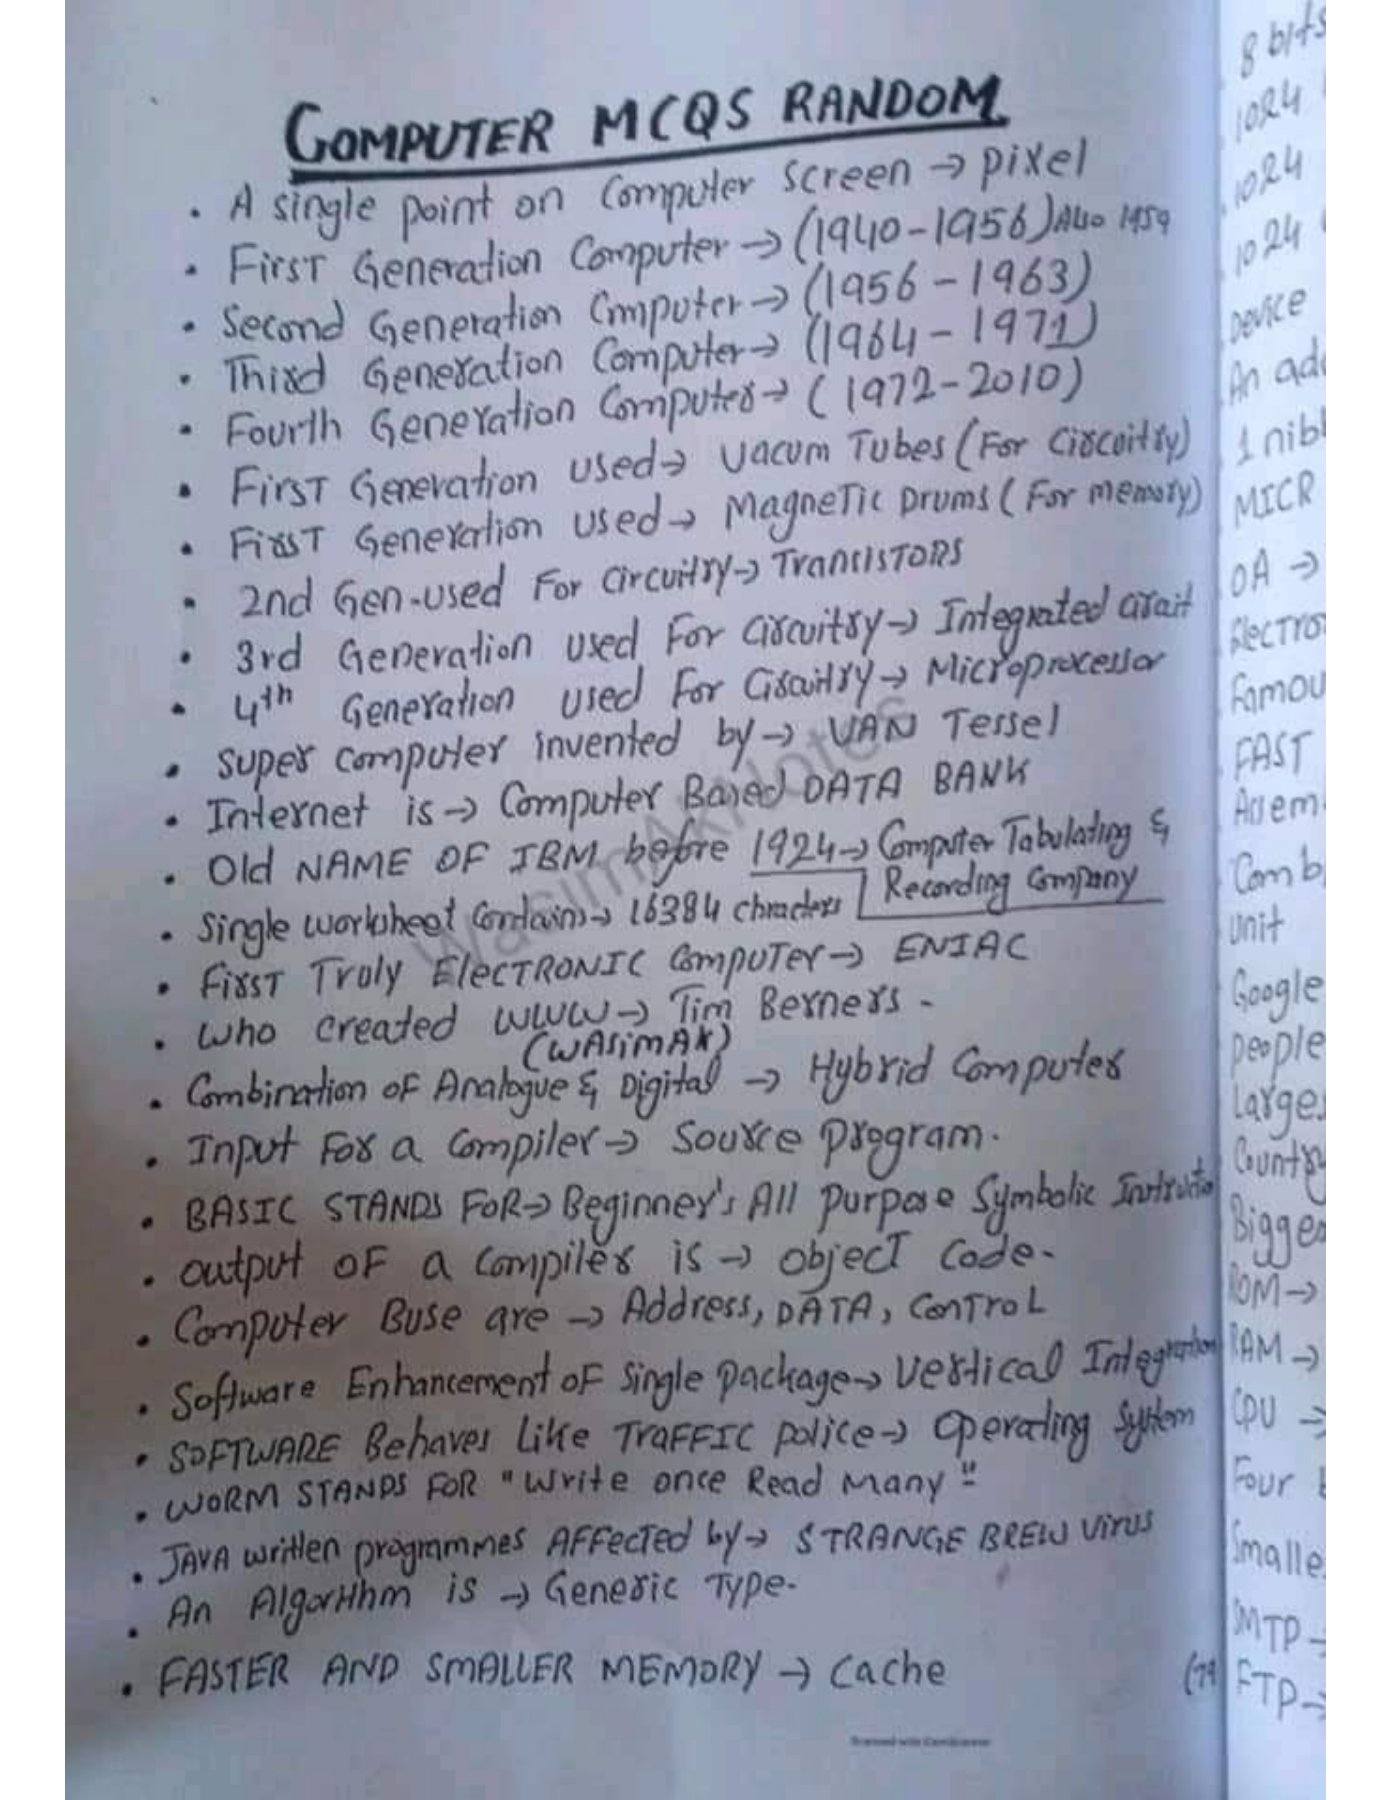 COMPUTER MCQS RANDOM
• A single point on Computer screen → pixel
• First Generation Computer → (1940-1956) Also 1959
• Second Generation Computer → (1956-1963)
• Third Generation Computer → (1964-1971)
• Fourth Generation Computer → (1972-2010)
• First Generation used → Vacum Tubes (For Circuitry)
• First Generation used → Magnetic Drums (For memory)
• 2nd Gen-used For Circuitry → Transistors
• 3rd Generation used For Circuitry → Integrated
• 4th Generation used For Circuitry → Microprocessor
• Super Computer invented by → VAN Tessel
• Internet is → Computer Based DATA BANK
• Old NAME OF IBM before 1924 → Computer Tabulating &
Recording Company
• Single worksheet Contains → 16384 chracters
• First Truly ELECTRONIC Computer → ENIAC
• Who created WWW → Tim Berners -
(WASimAK)
• Combination of Analogue & Digital → Hybrid Computer
• Input For a Compiler → Source program.
• BASIC STANDS FOR → Beginner's All purpose Symbolic
• output OF a Compiler is → object Code-
• Computer Buse are → Address, DATA, ConTRoL
• Software Enhancement of Single package → Vertical Integration
• SOFTWARE Behaves Like TRAFFIC police → Operating System
• WORM STANDS FOR "Write once Read Many"
• JAVA written programmes AFFected by → STRANGE BREW Virus
• An Algorithm is → Generic Type-
• FASTER AND SMALLER MEMORY → Cache
WasimAkNotes
8 bits
1024
1024
1024
Device
An
1
MICR
OA →
FAST
unit
Google
people
Country
ROM →
RAM →
CPU →
Four
SMTP
FTP →